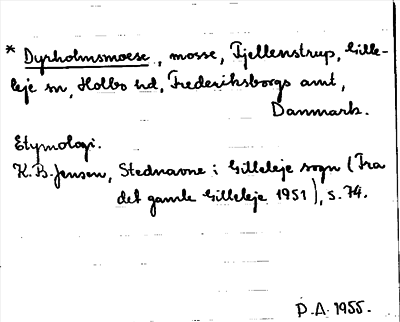 * Dyrholmsmoese, mosse, Fjellenstrup, Gille-
leje sn, Holbo hd, Frederiksborgs amt,
Danmark.
Etymologi.
K.B. Jensen, Stednavne i Gilleleje sogn (Fra
det gamle Gilleleje 1951), s. 74.
D.A. 1955.